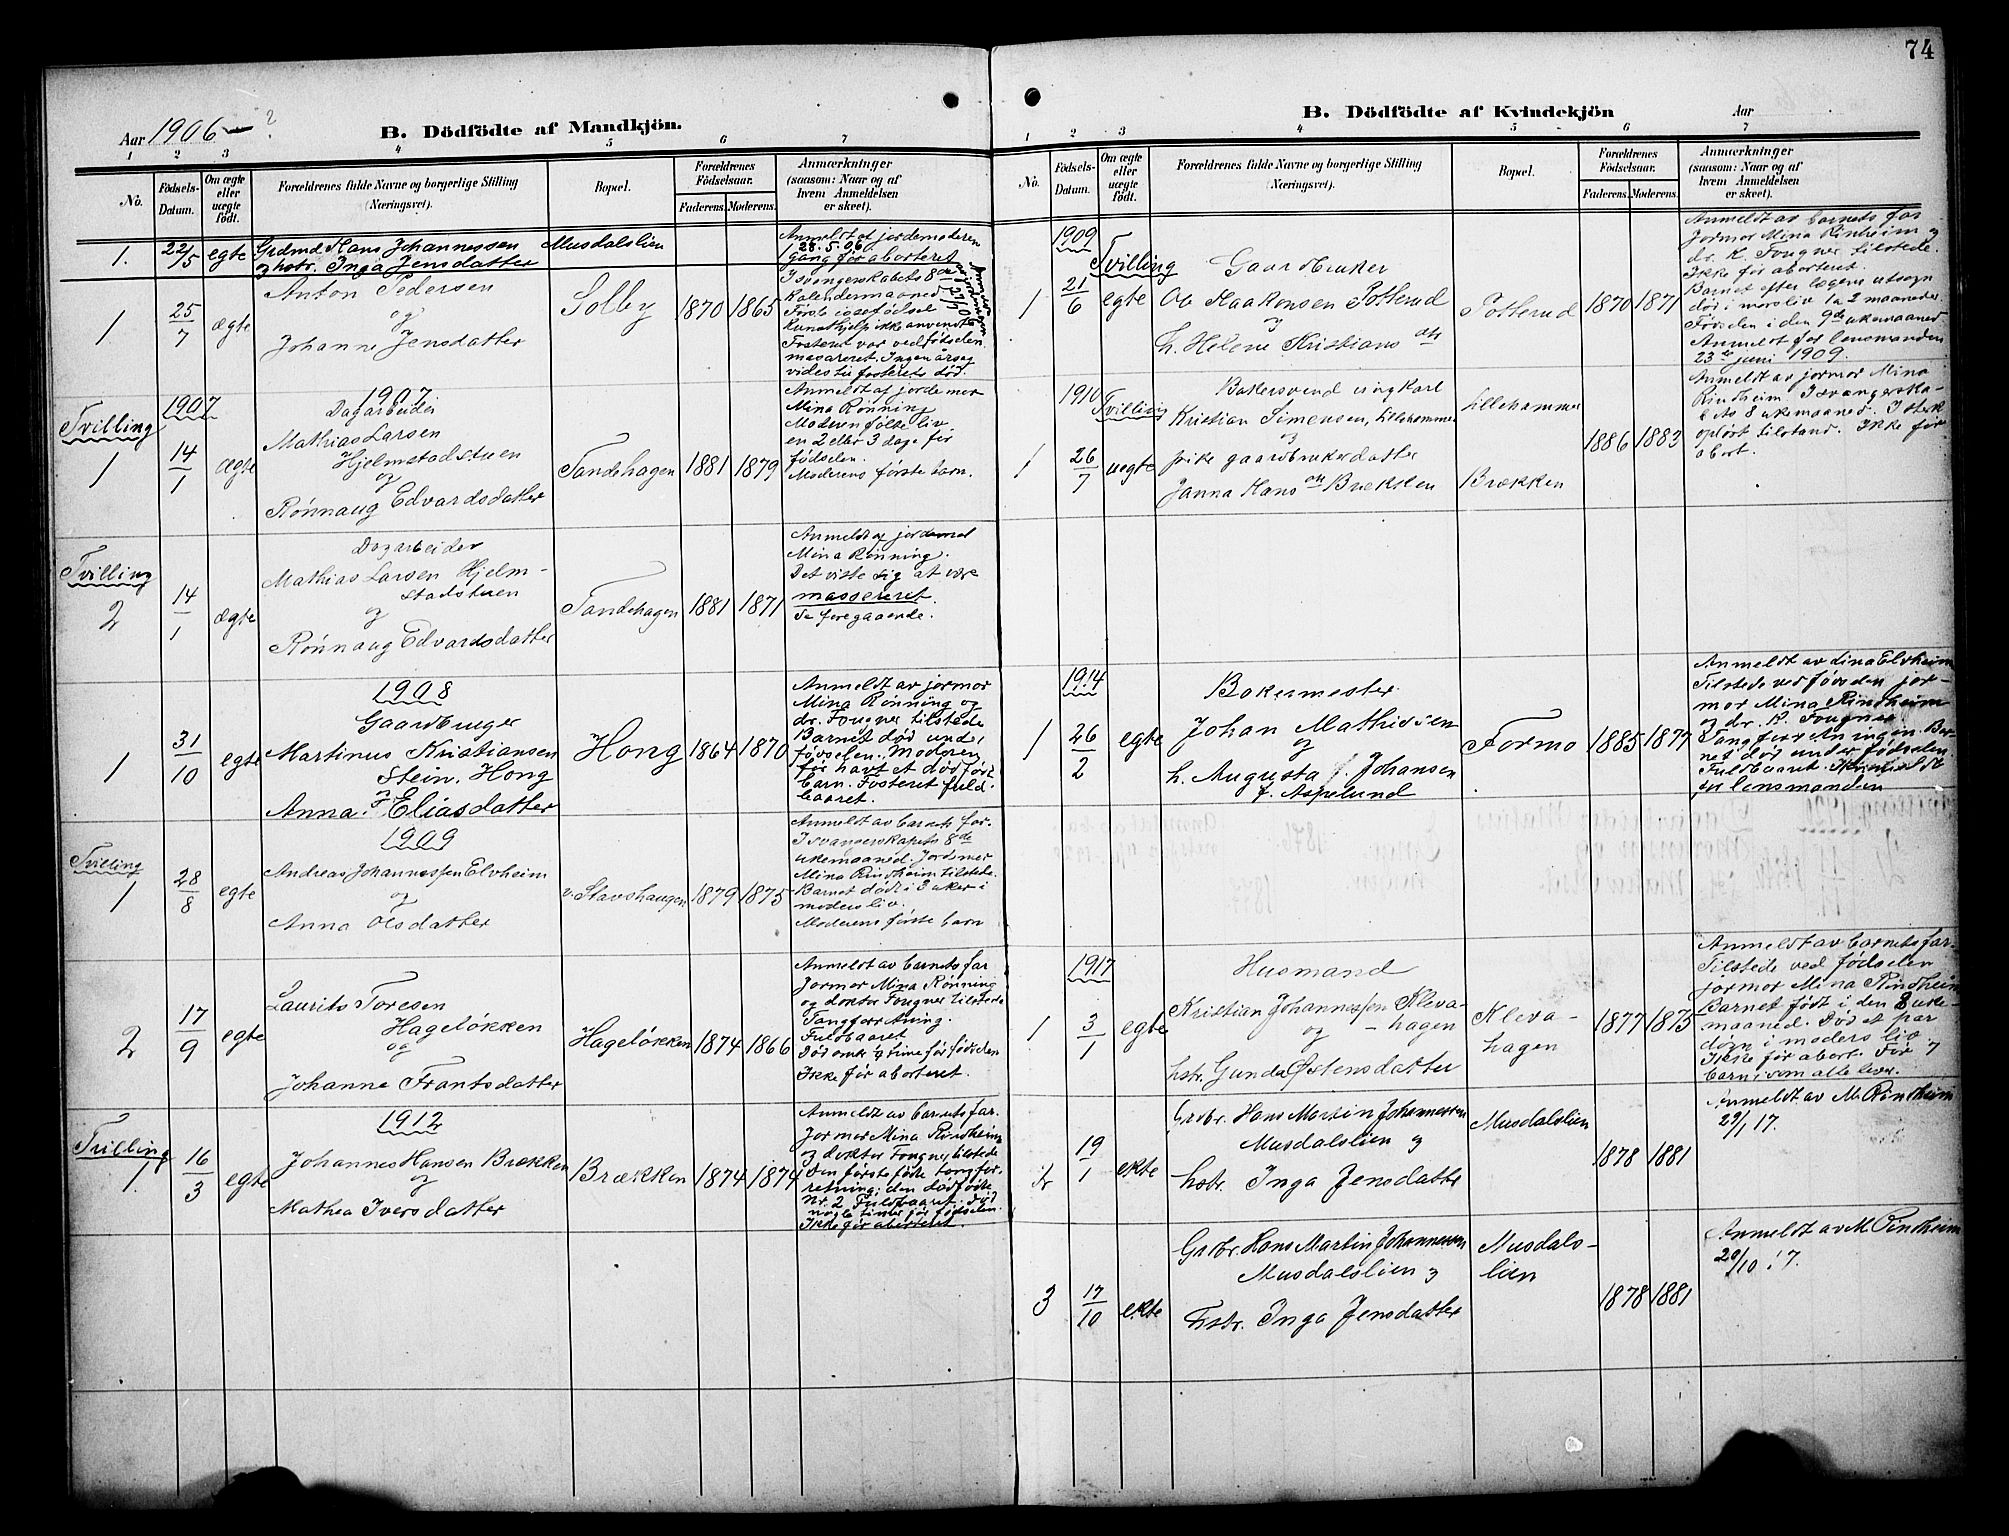 74
Aar 1906 – ?
B. Dödfödte af Mandkjön.
1 2 3 4 5 6 7
No.
Födsels-Datum.
Om ægte eller uægte födt.
Forældrenes fulde Navne og borgerlige Stilling
(Næringsvei).
Bopæl.
Forældrenes Födselsaar.
Faderens. Moderens.
Anmærkninger
(saasom: Naar og af
hvem Anmeldelsen
er skeet).
1. 22/5 egte
Grdmd Hans Johannessen
og hstr. Inga Jensdatter
Musdalslien
Anmeldt af jordemoderen
28.5.06.
1 gang før aborteret
1 25/7 ægte
Anton Pedersen
og
Johanne Jensdatter
Solby
1870 1865
I svangerskabets 8de
kalendermaaned
Første
Kunsthjelp ikke anvendt
Fosteret var ved fødselen
masareret. Ingen årsag
vides til fosterets død.
1907
Tvilling
1 14/1 ægte
1907
Dagarbeider
Mathias Larsen
Hjelmstadstuen
og
Rønnaug Edvardsdatter
Tandehagen
1881 1879
Anmeldt af jordemor
Mina Rønning
Moderen følte liv
en 2 eller 3 dage før
fødselen.
Moderens første barn.
Tvilling
2 14/1 ægte
Dagarbeider
Mathias Larsen Hjelm-
stadstuen
og
Rønnaug Edvardsdatter
Tandehagen
1881 1871
Anmeldt af jordemor
Mina Rønning.
Det viste sig at være
massereret.
Se foregaaende.
1908
1 31/10 egte
Gaardbruger
Martinus Kristiansen
Stein. Hong
og
Anna Eliasdatter
Hong
1864 1870
Anmeldt av jormor
Mina Rønning og
dr. Fougner tilstede
Barnet død under
fødselen. Moderen
før havt et dødfødt
barn. Fosteret fuld-
baaret.
1909
Tvilling
1 28/8 egte
Andreas Johannessen Elvheim
og
Anna Olsdatter
v. Stavshaugen
1879 1875
Anmeldt av barnets far.
I svangerskapets 8de
ukemaaned. Jordmor
Mina Rindheim tilstede.
Barnet død i 3 uker i
moders liv.
Moderens første barn
2 17/9 egte
Laurits Toresen
Hageløkken
og
Johanne Frantsdatter
Hageløkken
1874 1866
Anmeldt av barnets far
Jormor Mina Rønning
og doktor Fougner tilstede
Tangforretning.
Fuldbaaret
Død time før fødselen
Ikke før aborteret.
1912
Tvilling
1. 16/3 egte
Johannes Hansen Brækken
og
Mathea Iversdatter
Brækken
1874 1874
Anmeldt av barnets far.
Jormor Mina Rindheim
og doktor Fougner tilstede
Den første fødte tangfor-
retning; den dødfødte
Nr. 2 Fuldbaaret. Død
nogle timer før fødselen.
Ikke før aborteret.
B. Dödfödte af Kvindekjön
Aar
1 2 3 4 5 6 7
No.
Födsels-Datum.
Om ægte eller uægte födt.
Forældrenes fulde Navne og borgerlige Stilling
(Næringsvei).
Bopæl.
Forældrenes Födselsaar.
Faderens. Moderens.
Anmærkninger
(saasom: Naar og af
hvem Anmeldelsen
er skeet).
1909
Tvilling
1 21/6 egte
Gaardbruker
Ole Haakensen Potterud
og
h. Helene Kristians dtr
Potterud
1870 1871
Anmeldt av barnets far
Jormor Mina Rinheim og
dr. K. Fougner tilstede.
Ikke før aborteret.
Barnet efter lægens utsagn
død i morsliv 1 a 2 maaneder.
Fødselen i den 9de ukemaaned
Anmeldt for lensmanden
23de juni 1909.
1910
Tvilling
1 26/7 uegte
Bakersvend ungkarl
Kristian Simensen, Lillehammer
og
pike gaardbrukerdatter
Janna Hans dtr Brækken
Lillehammer
Brækken
1886 1883
Anmeldt av jormor Mina
Rindheim I svangerska-
pets 8 ukemaaned. I sterk
opløst tilstand. Ikke før
abort.
1914
1 26/2 egte
Bakermester
Johan Mathissen
og
h. Augusta J. Johansen
f. Aspelund
Formo
1885 1877
Anmeldt av Lina Elvheim
Tilstede ved fødselen jor-
mor Mina Rindheim
og dr. K. Fougner
Tangforretningen. Bar-
net død under fødselen
Fuldbaaret.
til lensmanden
1917
1 3/1 egte
Husmand
Kristian Johannessen Kleva-
og - hagen
hstr. Gunda Østensdatter
Kleva-
hagen
1877 1875
Anmeldt av barnets far.
Tilstede ved fødselen
jormor Mina Rindheim
Barnet født i den 8 uke-
maaned. Død et par
døgn i moders liv
Ikke før abort. Før 7
barn som alle lever.
2 19/1 ekte
Grbr. Hans Martin Johannessen
Musdalslien og
hstr. Inga Jensdatter
Musdalslien
1878 1881
Anmeldt av M. Rindheim
29/1 17.
3 17/10 ekte
Grbr. Hans Martin Johannessen
Musdalslien og
hstr. Inga Jensdatter
Musdals-
lien
1878 1881
Anmeldt av M. Rindheim
20/10 17.